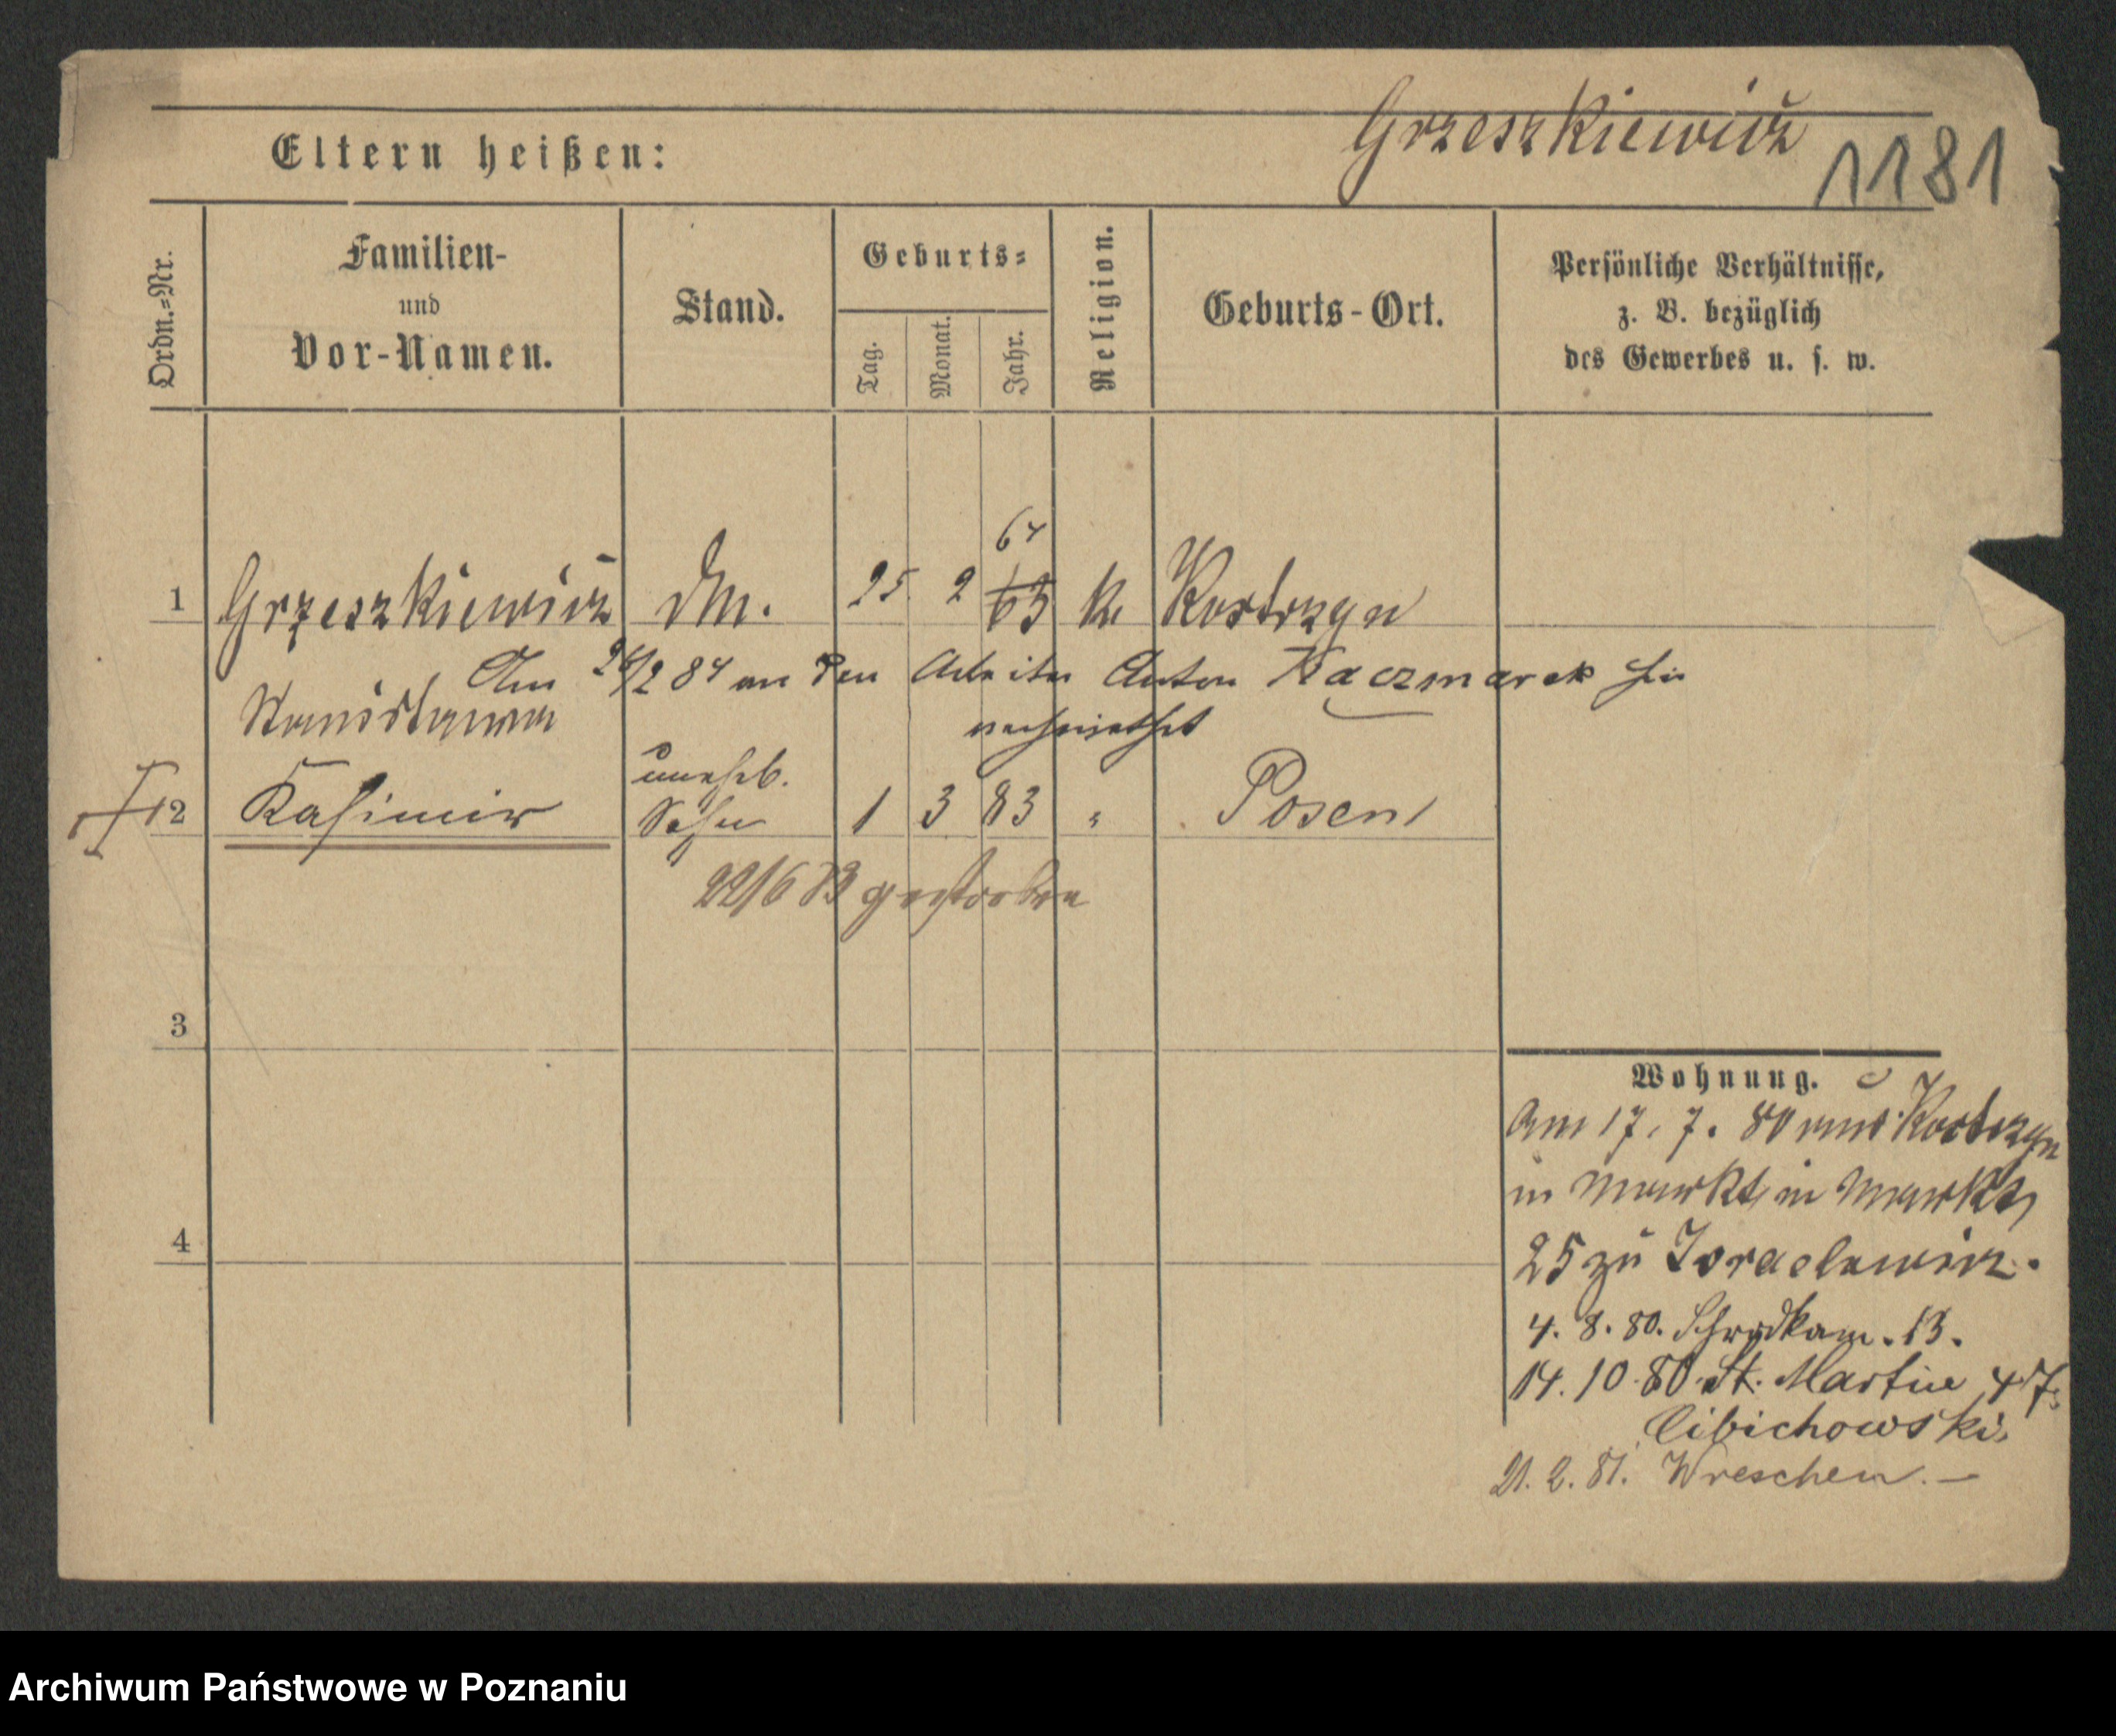 Grzeszkiewicz
1181
Eltern heißen:
Ordn.=Nr.
Familien-
und
Vor-Namen.
Stand.
Geburts=
Tag.
Monat.
Jahr.
Religion.
Geburts-Ort.
Persönliche Verhältnisse,
z. B. bezüglich
des Gewerbes u. s. w.
64
1 Grzeszkiewicz Dm. 25. 2 63 k. Kostrzyn
Am 24/2 84 an den Arbeiter Anton Kaczmarek hier
Stanislawa verheirathet
unehel.
2 Kasimir Sohn 1 3 83 " Posen
22/6 83 gestorben
3
4
Wohnung.
Am 17. 7. 80 aus Kostrzyn
in Markt
25 zu Israelewicz.
4. 8. 80. 13.
14. 10. 80. St. Martin 47.
Cibichowski.
21. 2. 81. Wreschen. —
Archiwum Państwowe w Poznaniu